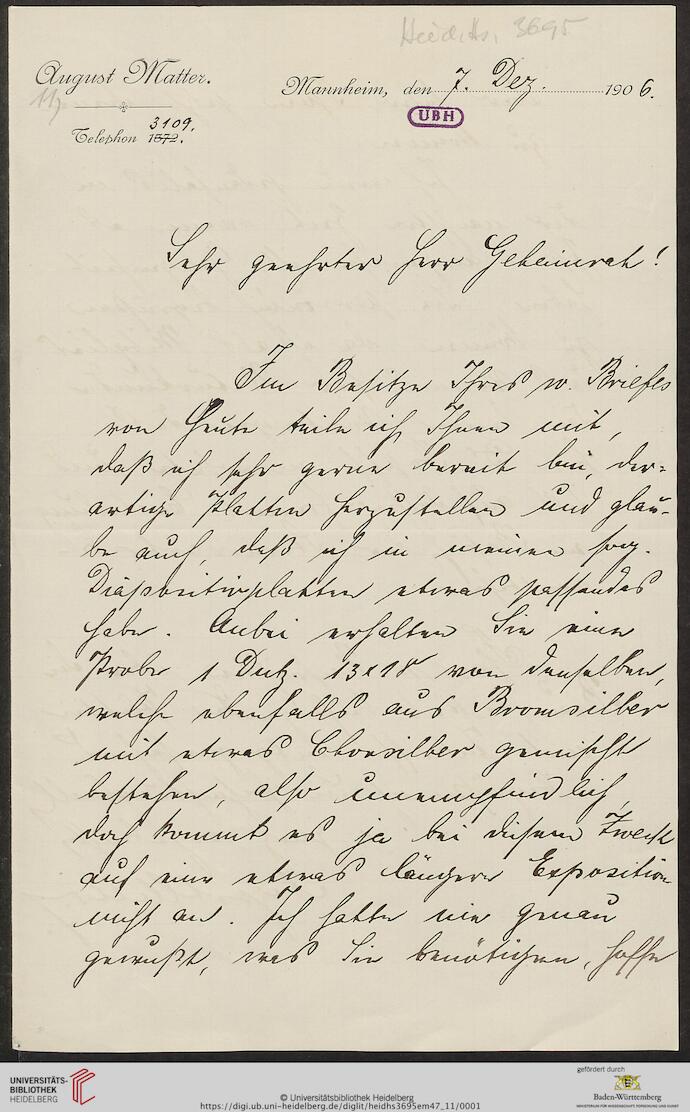 Heid. Hs. 3695
August Matter.
11)
Mannheim, den 7. Dez. 1906.
UBH
3109.
Telephon 1572.
Sehr geehrter Herr Geheimrat!
Im Besitze Ihres w. Briefes
von Heute teile ich Ihnen mit,
daß ich sehr gerne bereit bin, der-
artige Platten herzustellen und glau-
be auch, daß ich in meinen sog.
Diapositivplatten etwas passendes
habe. Anbei erhalten Sie eine
Probe 1 Dutz. 13x18 von denselben,
welche ebenfalls aus Bromsilber
mit etwas Chlorsilber gemischt
bestehen, also unempfindlich,
doch kommt es ja bei diesem Zweck
auf eine etwas längere Exposition
nicht an. Ich hatte nie genau
gewußt, was Sie benötigen, hoffe
UNIVERSITÄTS-
BIBLIOTHEK
HEIDELBERG
© Universitätsbibliothek Heidelberg
https://digi.ub.uni-heidelberg.de/diglit/heidhs3695em47_11/0001
gefördert durch
Baden-Württemberg
MINISTERIUM FÜR WISSENSCHAFT, FORSCHUNG UND KUNST